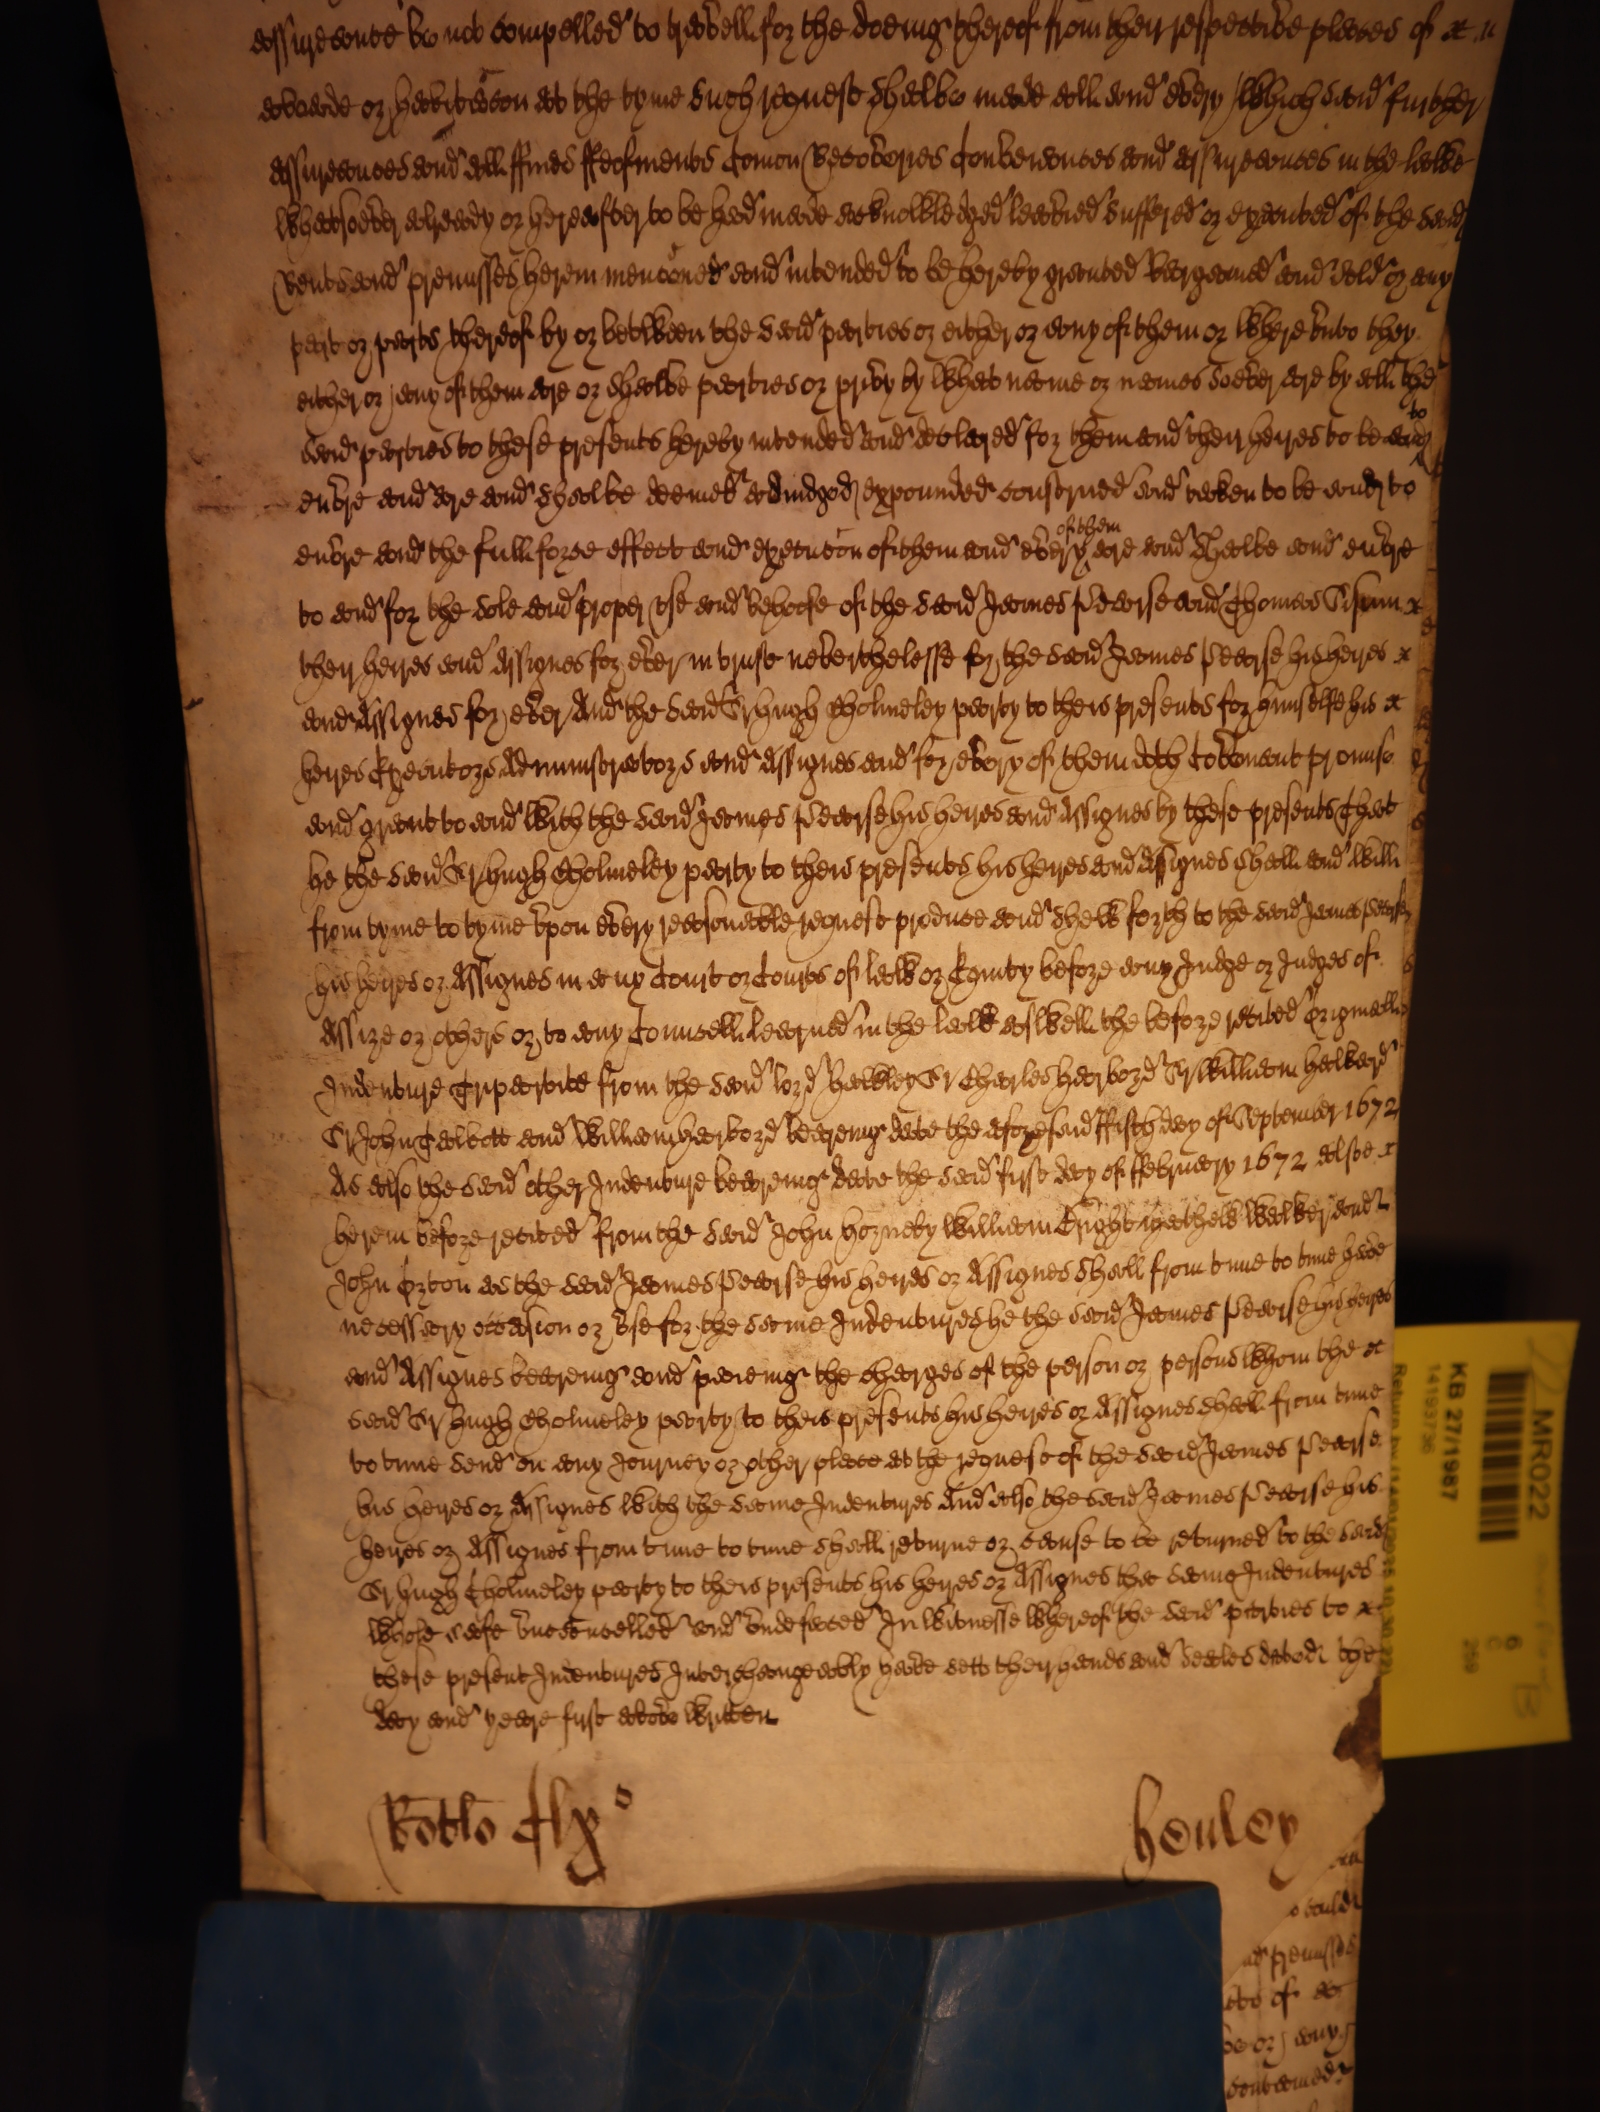 assureance be not compelled to travell for the doeing thereof from their respective places of
aboade or habitacon att the tyme such request shalbe made all and every which said further
Assureances and all ffines ffeofments Comon Recoveries Conveiances and assureances in the lawe
whatsoever already or hereafter to be had made acknowledged leavied suffered or executed of the said
Rents and premisses herein menconed and intended to be hereby graunted Bargained and sold or any
part or parts thereof by or betweene the said parties or either or any of them or whereunto they
either or any of them are or shalbe parties or privy by what name or names soever are by all the
said parties to these presents hereby intended and declared for them and their heires to be and to
enure and are and shalbe deemed adiudged expounded construed and taken to be and to
enure and the full force effect and execucon of them and every of them are and shalbe and enure
to and for the sole and proper vse and behoofe of the said James Pearse and Thomas
their heires and Assignes for ever in trust neverthelesse for the said James Pearse his heires
and Assignes for ever And the said Sr Hugh Cholmeley party to theis presents for himselfe his
heires Executors Administrators and Assignes and for every of them doth Covenant promise
and graunt to and with the said James Pearse his heires and Assignes by these presents That
he the said Sr Hugh Cholmeley party to theis presents his heires and Assignes shall and will
from tyme to tyme vpon every reasonable request produce and shew forth to the said James Pearse
his heires or Assignes in any Court or Courts of law or Equity before any Judge or Judges of
Assize or others or to any Councell Learned in the law aswell the before recited Originall
Indenture Tripartite from the said lord Hawley Sr Charles Harbord Sr William Haward
Sr John Talbott and William Harbord beareing date the aforesaid ffifth day of September 1672
As also the said other Indenture beareing date the said first day of ffebruary 1672 alsoe
herein before recited from the said John Horneby William Mathew Walker and
John Orton as the said James Pearse his heires or Assignes shall from time to time have
necessary occasion or vse for the same Indentures he the said James Pearse his heires
and Assignes beareing and paieing the charges of the person or persons whom the
said Sr Hugh Cholmeley party to theis presents his heires or Assignes shall from time
to time send on any Journey or other place at the request of the said James Pearse
his heires or Assignes with the same Indentures And also the said James Pearse his
heires or Assignes from time to time shall returne or cause to be returned to the said
Sr Hugh Cholmeley party to theis presents his heires or Assignes the same Indentures
whole safe vncancelled and vndefaced In witnesse whereof the said parties to
these present Indentures Interchangeably have sett their hands and seales the
day and yeare first above written
henley
premisses
of
or any
MR022
KB 27/1987
14193736